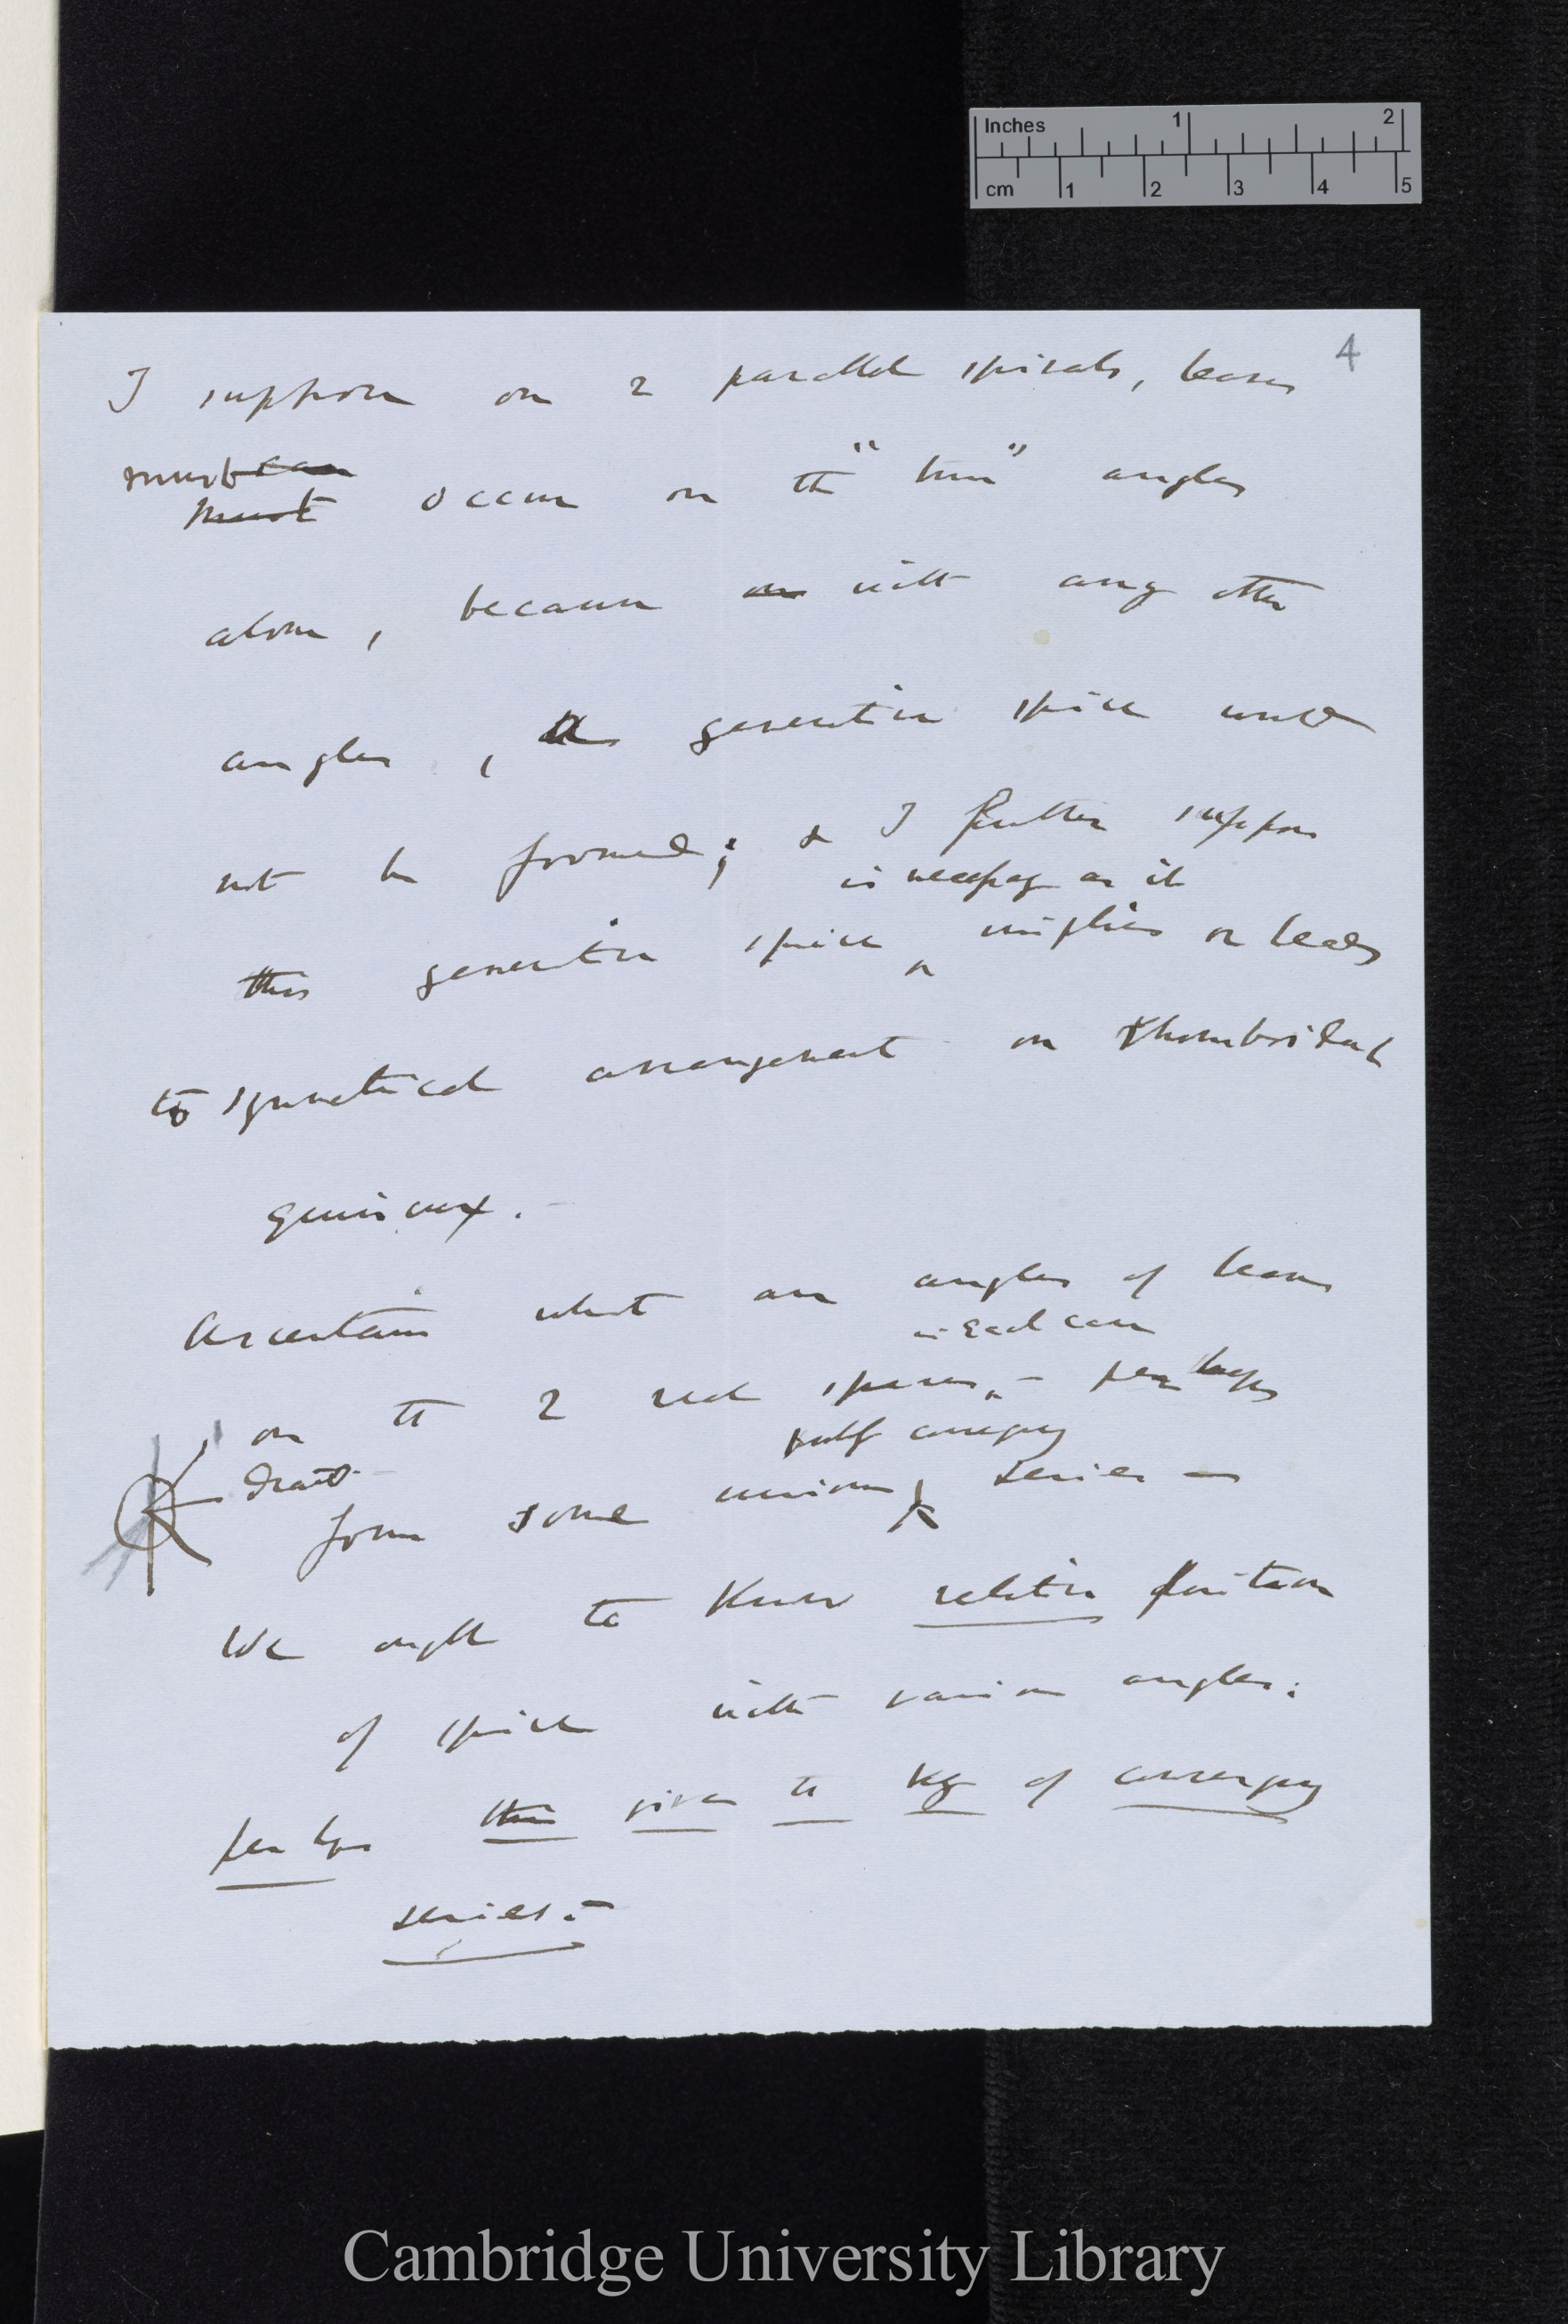 Inches 1 2
cm 1 2 3 4 5
4
I suppose on 2 parallel spirals, leaves
must can
must occur on the "true" angles
alone, because on with any other
angles, a generative spire would
not be formed; & I further suppose
is necessary as it
this generative spire ^ implies or leads
to symmetrical arrangement on rhomboidal
Ascertain what are angles of leaves
in each case
on the 2 real spires, – perhaps
form some series —
We ought to know relative position
of spire with various angles:
perhaps this gives the key of
series.–
Cambridge University Library